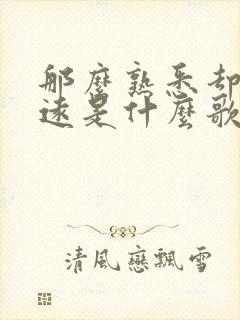 那麼熟悉却
遠是什麼歌
清風戀飄雪